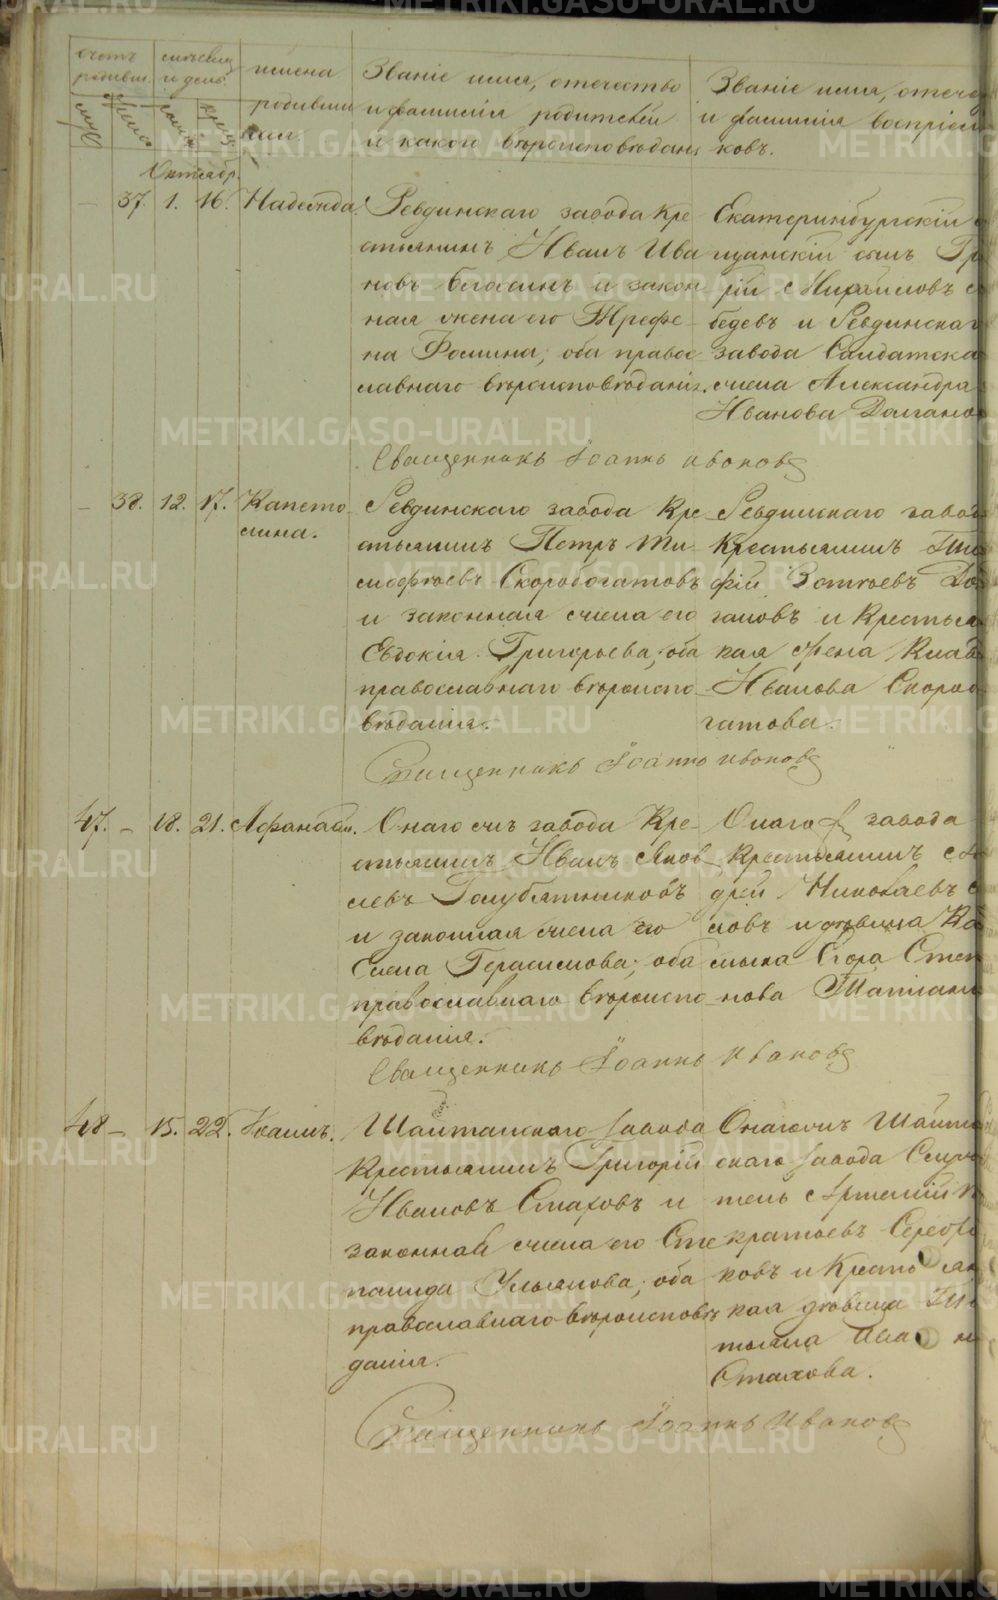 счетъ родивш. мѣсяцъ и день имена родивши Званіе имя, отечество и фамилія родителей и какого вѣроисповѣдан. Званіе имя, отече и фамилія воспріем ковъ.
Октябр.
37. 1. 16. Надежда Ревдинскаго завода Кре
стьянинъ Иванъ Ива
новъ и закон
ная жена его
на Фомина, оба право
славнаго вѣроисповѣданія.
Екатеринбургскій
щанскій сынъ Гр
рій Михайловъ
бедевъ и Ревдинскаг
завода Салдатска
жена Александра
Иванова
Священникъ Іоаннъ Ивановъ
38. 12. 17. Капето
лина.
Ревдинскаго завода Кре
стьянинъ Петръ Ти
моѳѣевъ Скоробогатовъ
и законная жена его
Евдокія Григорьева, оба
православнаго вѣроиспо
вѣданія.
Ревдинскаго завод
Крестьянинъ Тимо
фій Зотѣевъ
гановъ и Крестья
кая жена Клав
Иванова Скоробо
гатова.
Священникъ Іоаннъ Ивановъ
47. – 18. 21. Афанасій.
Онаго жъ завода Кре
стьянинъ Иванъ Яков
левъ Голубятниковъ
и законная жена его
Елена Герасимова, оба
православнаго вѣроиспо
вѣданія.
Онаго завода
Крестьянинъ Ан
дрей Николаевъ
ловъ и дѣвица
Егора Степ
нова Татіана
Священникъ Іоаннъ Ивановъ
48 – 15. 22. Іоаннъ.
Шайтанскаго завода
Крестьянинъ Григорій
Ивановъ Стаховъ и
законная жена его Сте
панида Ульянова, оба
православнаго вѣроисповѣ
данія.
Онагожъ Шайтан
скаго завода Служи
тель Артемій
кратьевъ Серебря
ковъ и Крестьян
кая дѣвица Та
тьяна Ива н
Стахова.
Священникъ Іоаннъ Ивановъ
METRIKI.GASO-URAL.RU